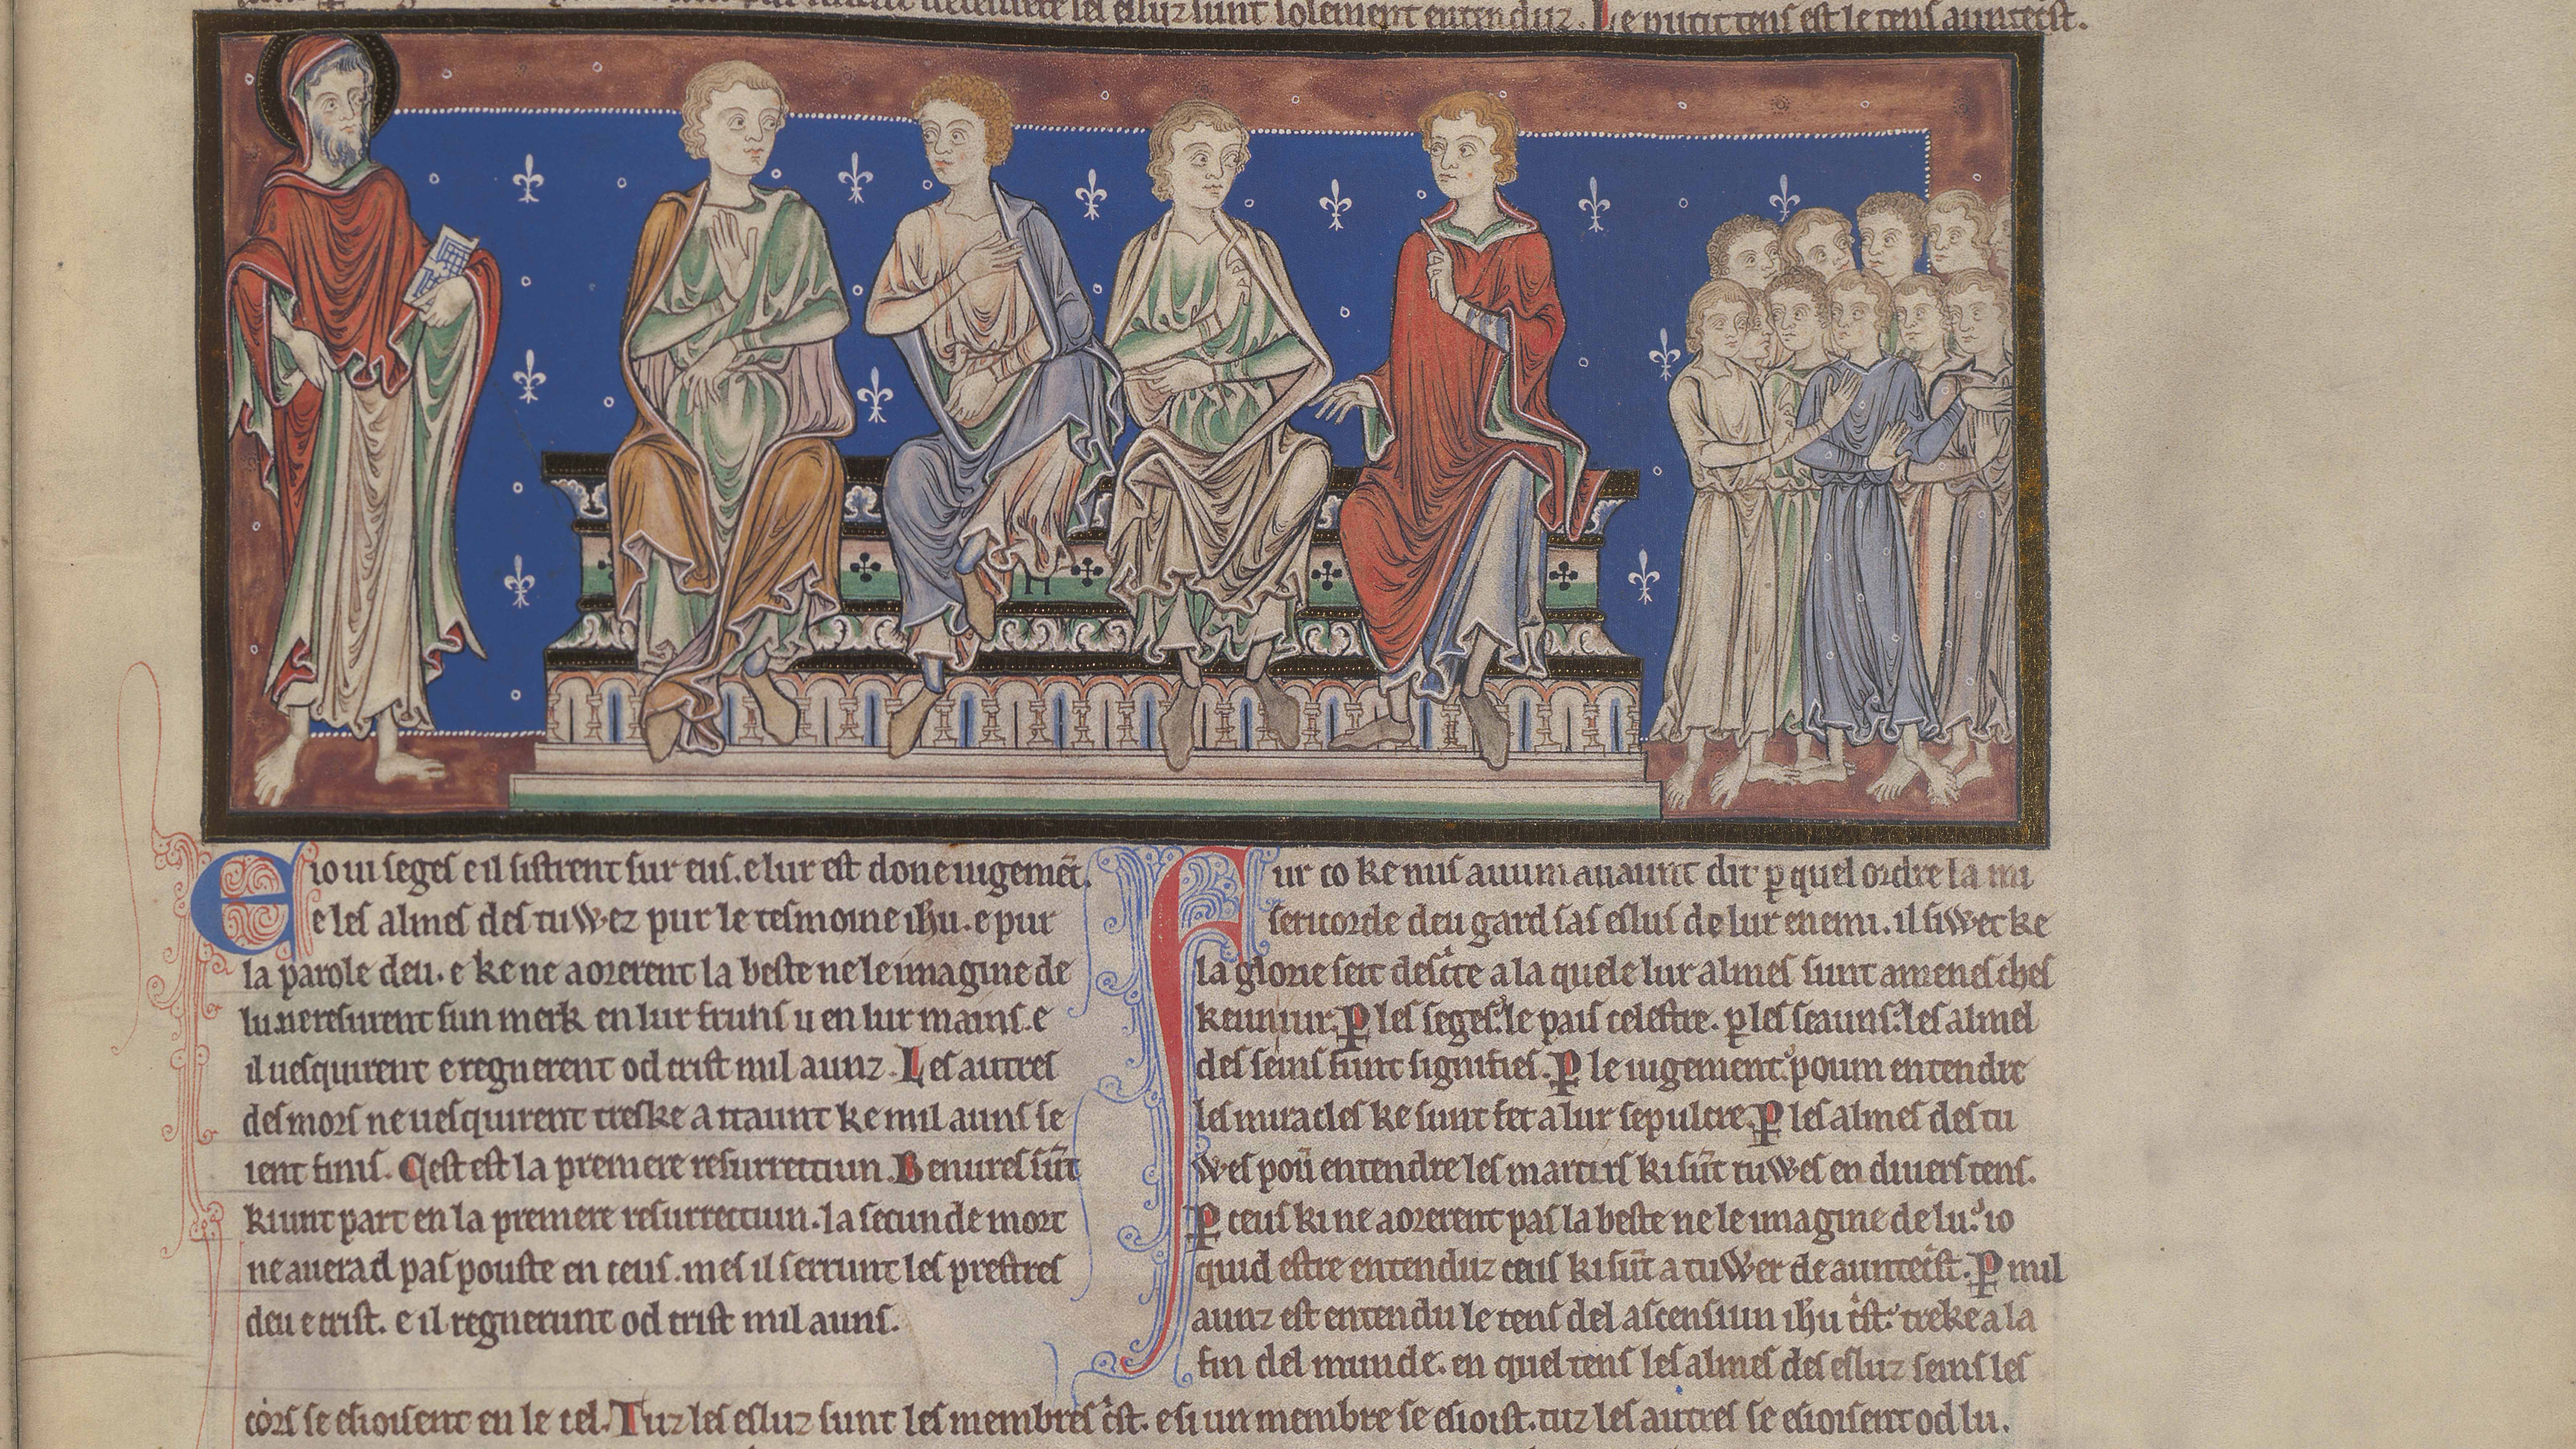 sei esluz sunt solement entenduz. Le petit tens est le tens antecist.
E io ui seges e il sistrent sur eus. e lur est done iugemẽt.
e les almes des tuwez pur le tesmoine ihu. e pur
la parole deu. e ke ne aorerent la beste ne le imagine de
lu. ne resurent sun merk en lur fruns u en lur mains. e
il uesquirent e regnerent od crist mil aunz. Les autres
des mors ne uesquirent treske a ttaunt ke mil auns se
ient finis. Cest est la premere resurrectiun. Benures sũt
ki unt part en la premere resurrectiun. la secunde mort
ne auerad pas pouste en ceus. mes il serrunt les prestres
deu e crist. e il regnerunt od crist mil auns.
Pur co ke nus auum auaunt dit ꝑ quel ordre la mi
sericorde deu gard sas eslus de lur enemi. il siwet ke
la glorie seit descite a la quele lur almes sunt amenes ches
keun iur. P les seges: le pais celestre. ꝑ les seauns: les almes
des seins sunt signifies. P le iugement: poum entendre
les miracles ke sunt fet a lur sepulcre. P les almes des tu
wes poũ entendre les martirs ki sũt tuwes en diuers tens.
P ceus ki ne aorerent pas la beste ne le imagine de lu: io
quid estre entenduz ceus ki sũt a tuwer de auntecist. P mil
aunz est entendu le tens del ascensiun ihu c̃st: treke a la
fin del munde. en quel tens les almes des esluz seins les
cors se esioisent en le cel. Tuz les esluz sunt les membres c̃st. e si un membre se esioist. tuz les autres se esioisent od lu.